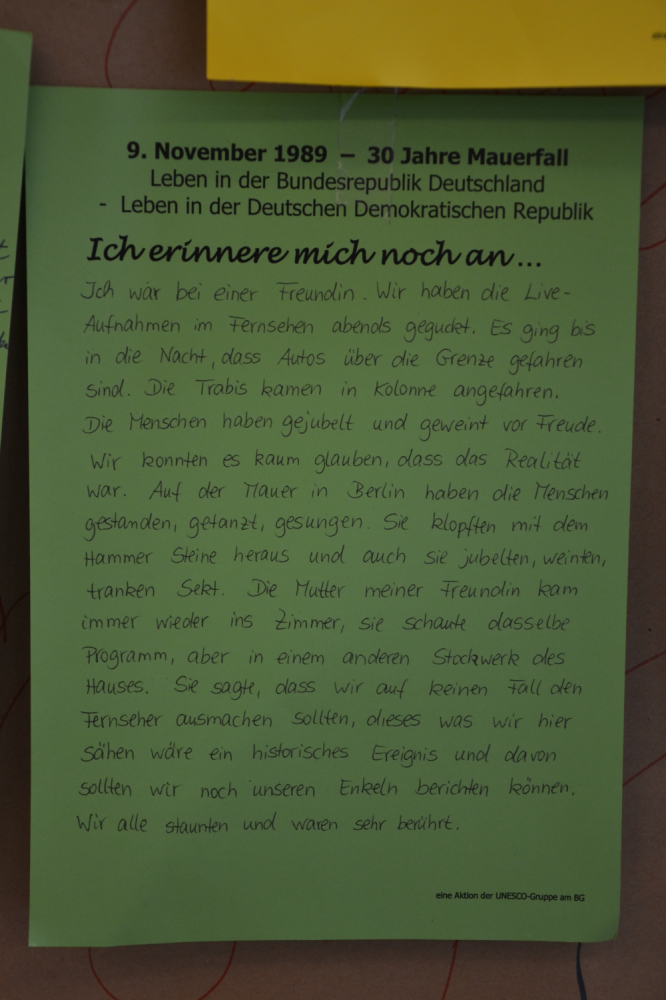 9. November 1989 – 30 Jahre Mauerfall
Leben in der Bundesrepublik Deutschland
- Leben in der Deutschen Demokratischen Republik
Ich erinnere mich noch an...
Ich war bei einer Freundin. Wir haben die Live-
Aufnahmen im Fernsehen abends geguckt. Es ging bis
in die Nacht, dass Autos über die Grenze gefahren
sind. Die Trabis kamen in Kolonne angefahren.
Die Menschen haben gejubelt und geweint vor Freude.
Wir konnten es kaum glauben, dass das Realität
war. Auf der Mauer in Berlin haben die Menschen
gestanden, getanzt, gesungen. Sie klopften mit dem
Hammer Steine heraus und auch sie jubelten, weinten,
tranken Sekt. Die Mutter meiner Freundin kam
immer wieder ins Zimmer, sie schaute dasselbe
Programm, aber in einem anderen Stockwerk des
Hauses. Sie sagte, dass wir auf keinen Fall den
Fernseher ausmachen sollten, dieses was wir hier
sähen wäre ein historisches Ereignis und davon
sollten wir noch unseren Enkeln berichten können.
Wir alle staunten und waren sehr berührt.
eine Aktion der UNESCO-Gruppe am BG